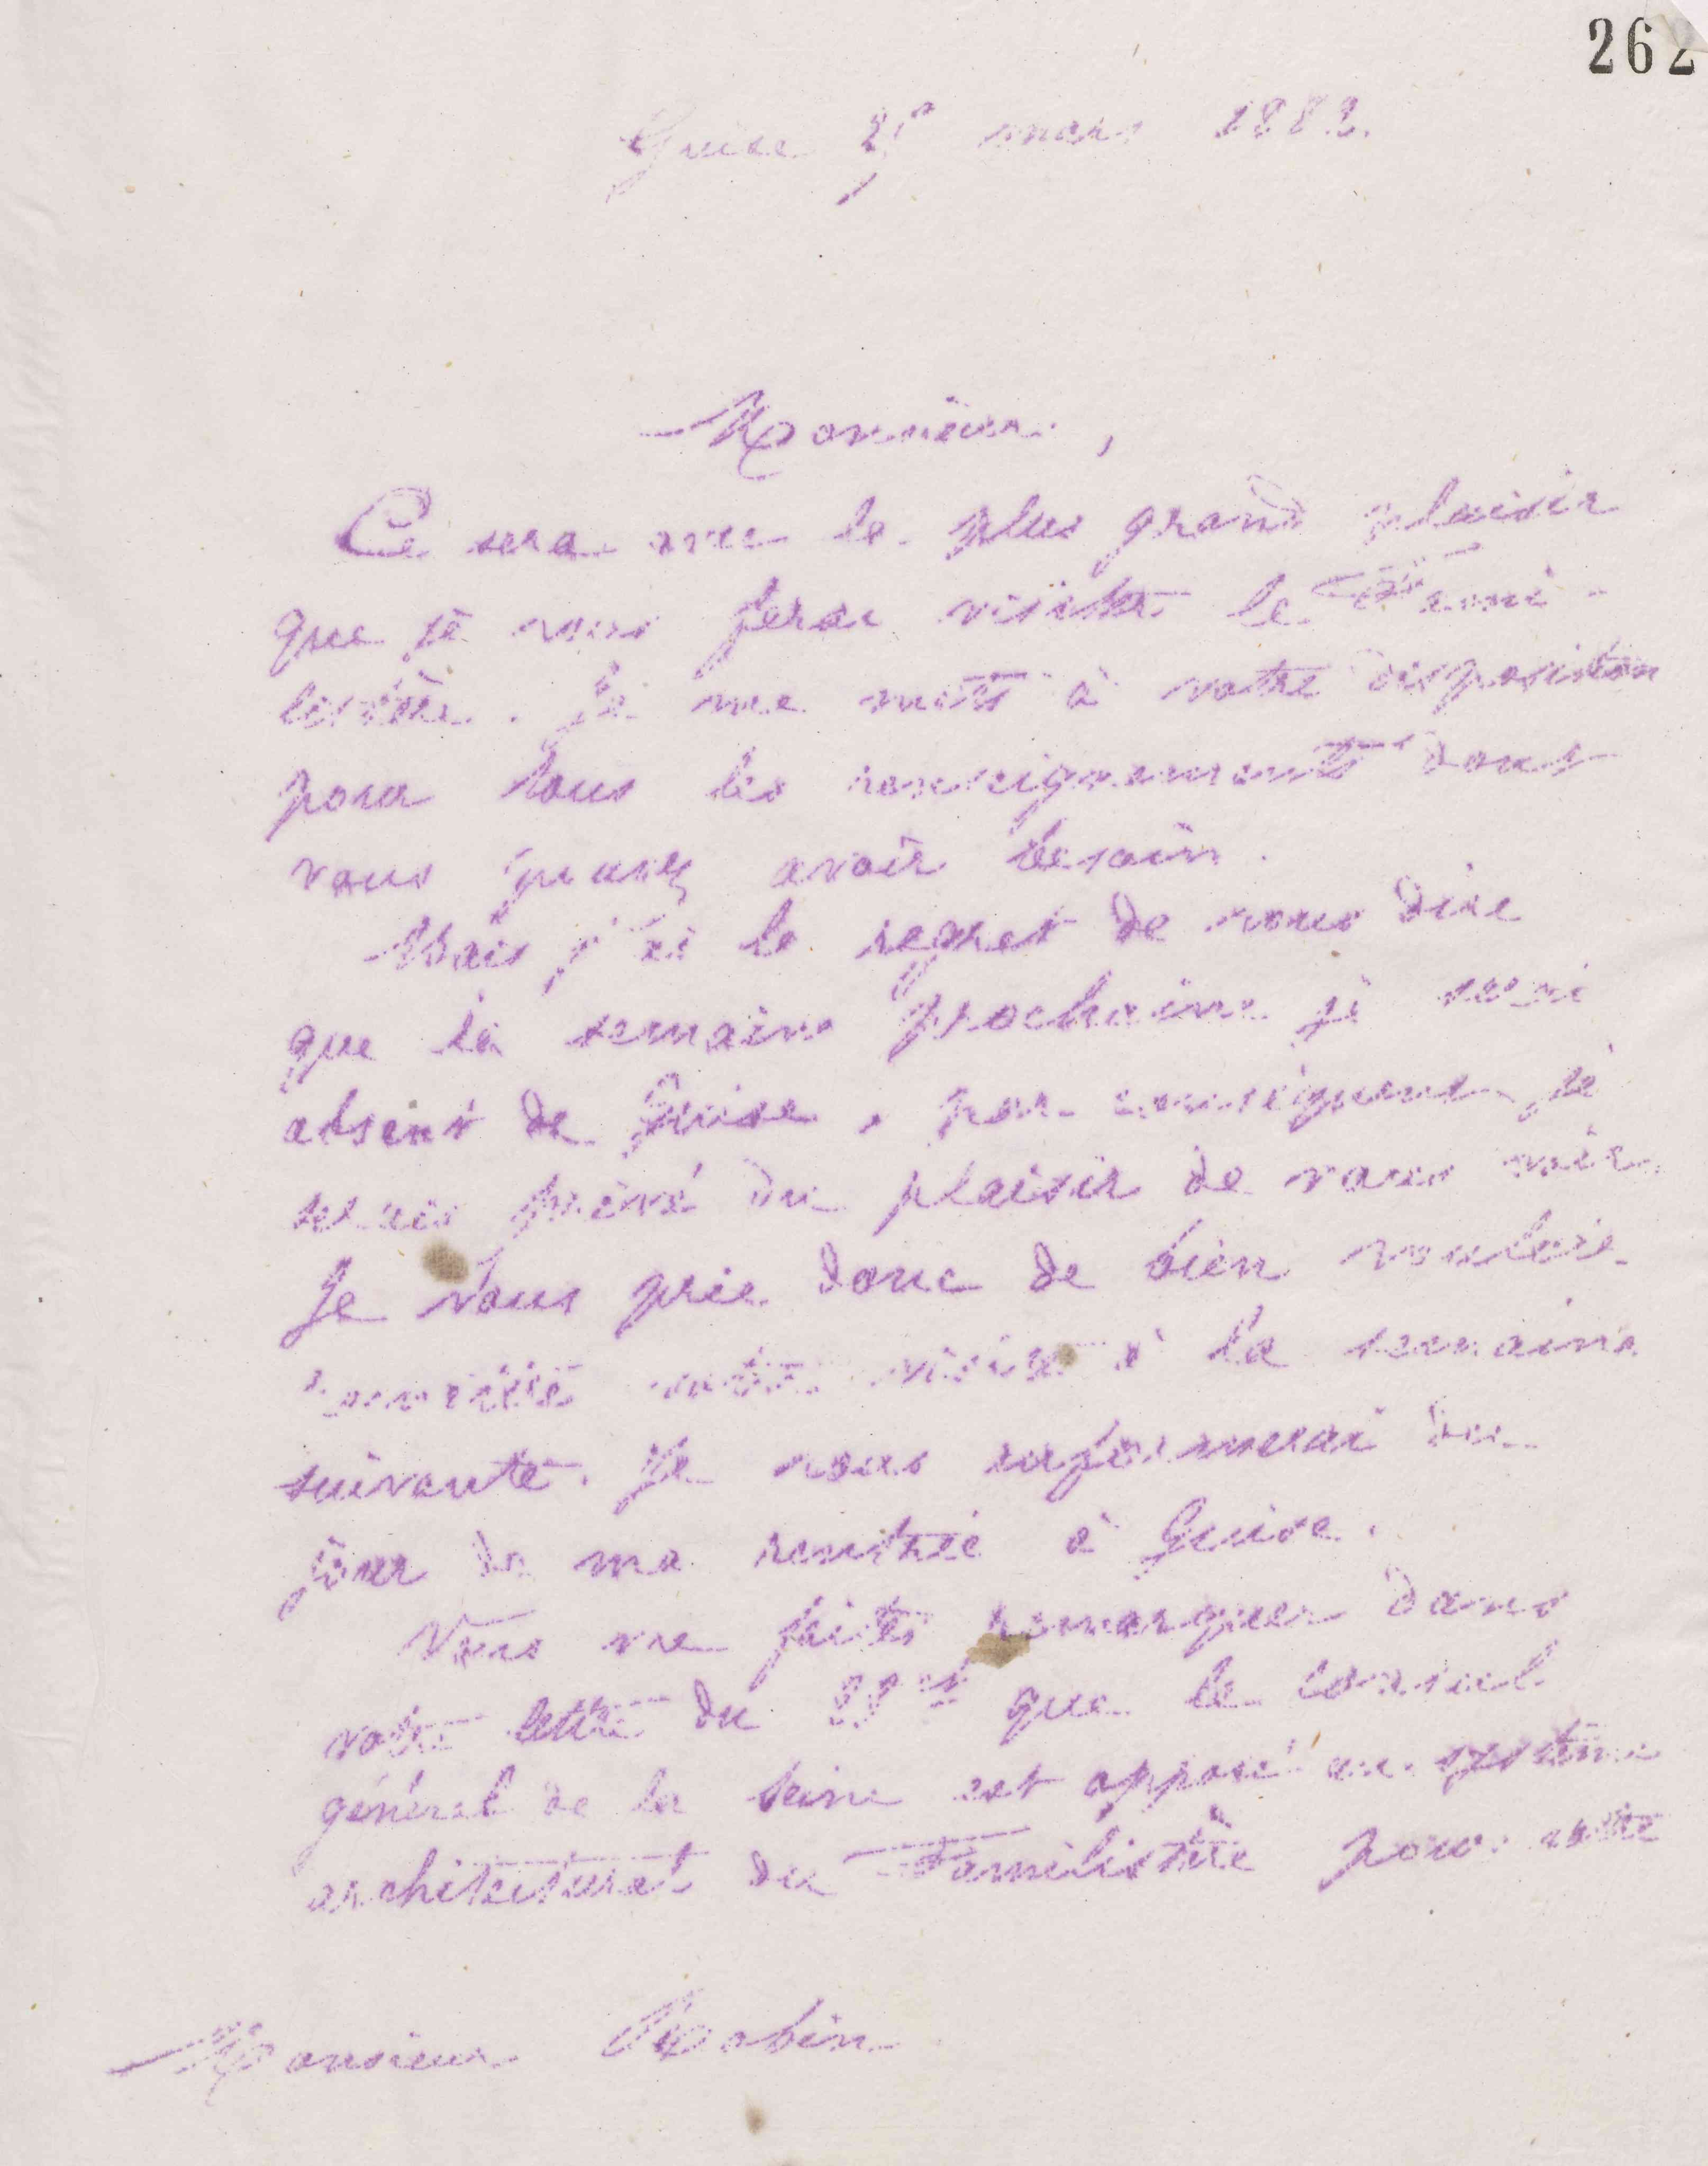 262
Guise mars 1882.
Monsieur,
Ce sera avec le plus grand plaisir
que je vous ferai visiter le Fami-
listère. Je me mets à votre disposition
pour tous les renseignements dont
vous pourrez avoir besoin.
Mais j'ai le regret de vous dire
que la semaine prochaine je serai
absent de Guise, par conséquent je
serais privé du plaisir de vous voir.
Je vous prie donc de bien vouloir
remettre votre visite à la semaine
suivante. Je vous informerai du
jour de ma rentrée à Guise.
Vous me faites remarquer dans
votre lettre du que le conseil
général de la Seine est opposé au système
architectural du Familistère pour votre
Monsieur Robin